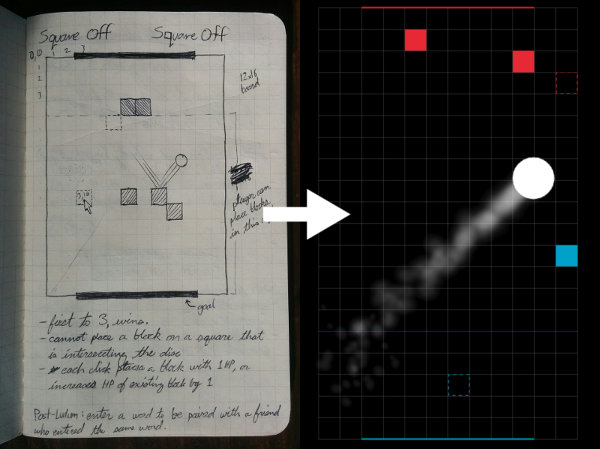 Square Off Square Off
0,0 1 2 3
1
2
3
12x16
board
player can
place blocks
in this
goal
- first to 3, wins.
- cannot place a block on a square that
is intersecting the disc
- each click places a block with 1HP, or
increases HP of existing block by 1
Post-Ludum: enter a word to be paired with a friend
who entered the same word.